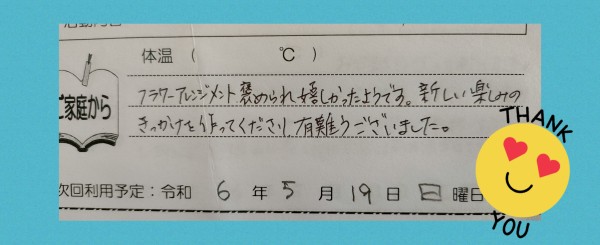 体温（　　　　℃）
ご家庭から
フラワーアレンジメント褒められ嬉しかったようです。新しい楽しみの
きっかけを作ってくださり、有難うございました。
次回利用予定：令和 6 年 5 月 19 日 日 曜日
THANK
YOU